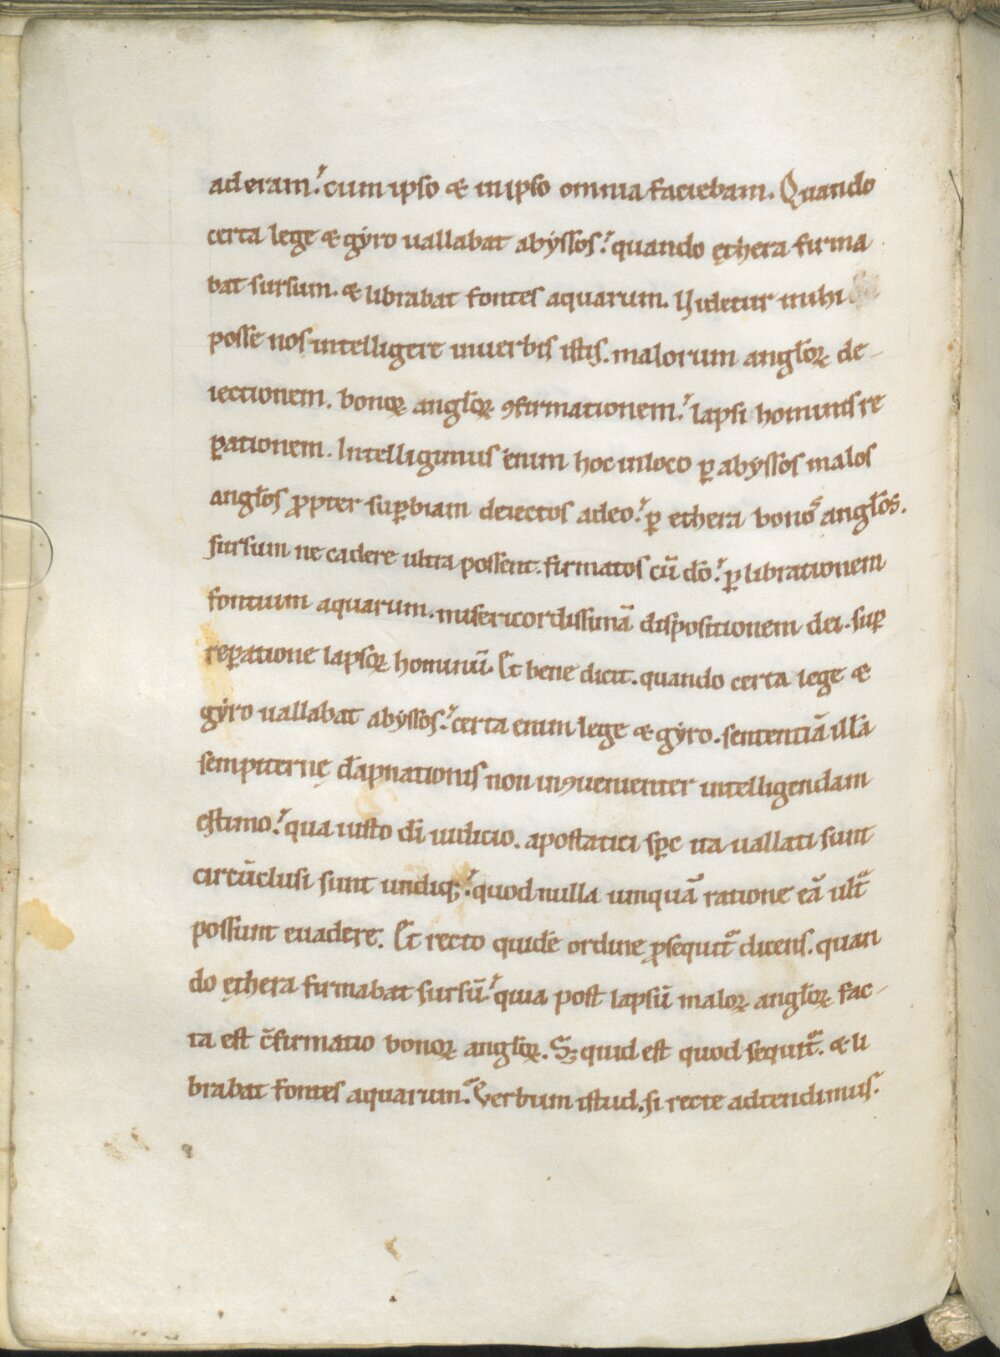 aderam. cum ipso & in ipso omnia faciebam. Quando
certa lege & gẏro uallabat abẏssos. quando ęthera firma
bat sursum. & librabat fontes aquarum. Videtur mihi
posse nos intelligere in uerbis istis. malorum angl̄oꝝ de-
iectionem. bonoꝝ angl̄oꝝ ꝯfirmationem. lapsi hominis re
ꝑationem. Intelligimus enim hoc in loco ꝑ abẏssos malos
angl̄os ꝓpter suꝑbiam deiectos adeo. ꝑ ethera bonos angl̄os.
sursum ne cadere ultra possent. firmatos cū dō. ꝑ librationem
fontium aquarum. misericordissimā dispositionem dei. suꝑ
reꝑatione lapsoꝝ hominū. Et bene dicit. quando certa lege &
gẏro uallabat abẏssos. certa enim lege & gẏro. sententiā illā
sempiternę dāpnationis non inꝯuenienter intelligendam
estimo. qua iusto dī iudicio. apostatici sp̄c ita uallati sunt
circūclusi sunt undiq;. quod nulla umquā ratione eā ult̄
possunt euadere. Et recto quidē ordine ꝓsequit᷑ dicens. quan
do ęthera firmabat sursū. quia post lapsū maloꝝ angl̄oꝝ fac-
ta est c̄firmatio bonoꝝ angl̄oꝝ. Sꝫ quid est quod sequit᷑. & li
brabat fontes aquarum. Verbum istud. si recte adtendimus.